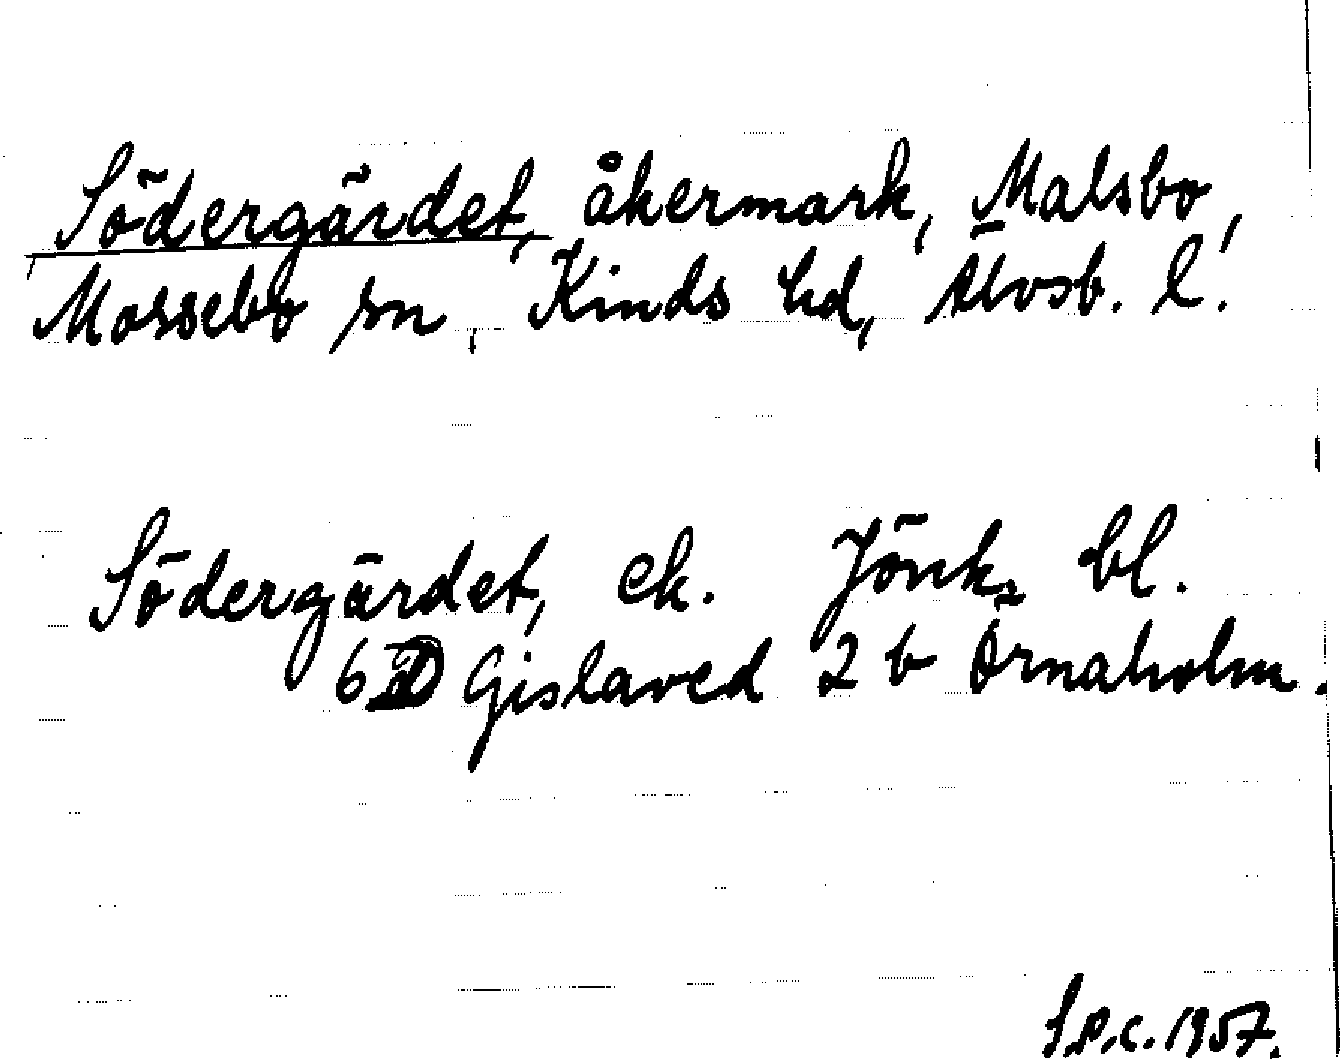 Södergärdet, åkermark, Malsbo,
Mossebo sn, Kinds hd, Älvsb. l.
Södergärdet, ek. Jönk. bl.
6D Gislaved 2 b Örnaholm.
S.P.C. 1957.